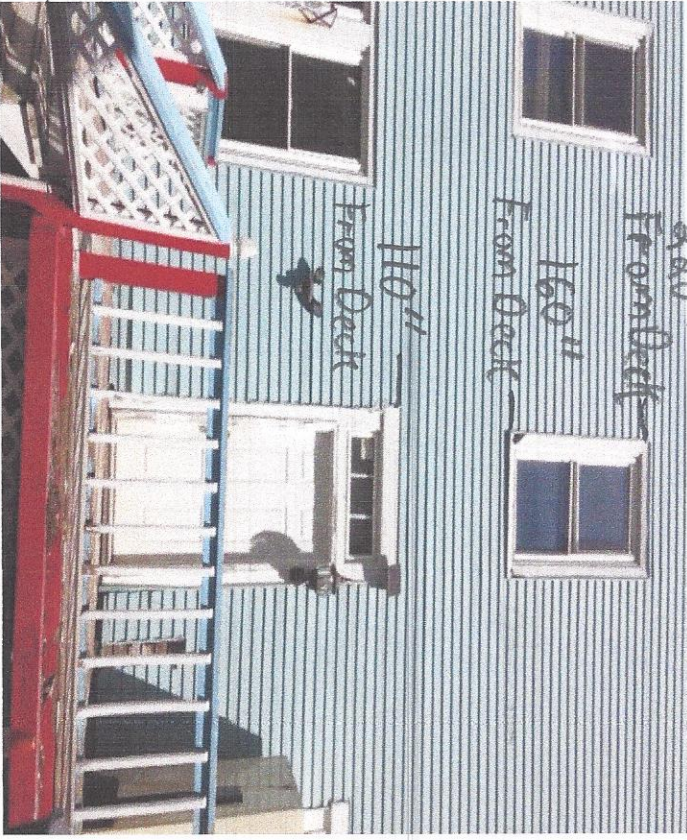 From Deck
160"
From Deck
110"
From Deck